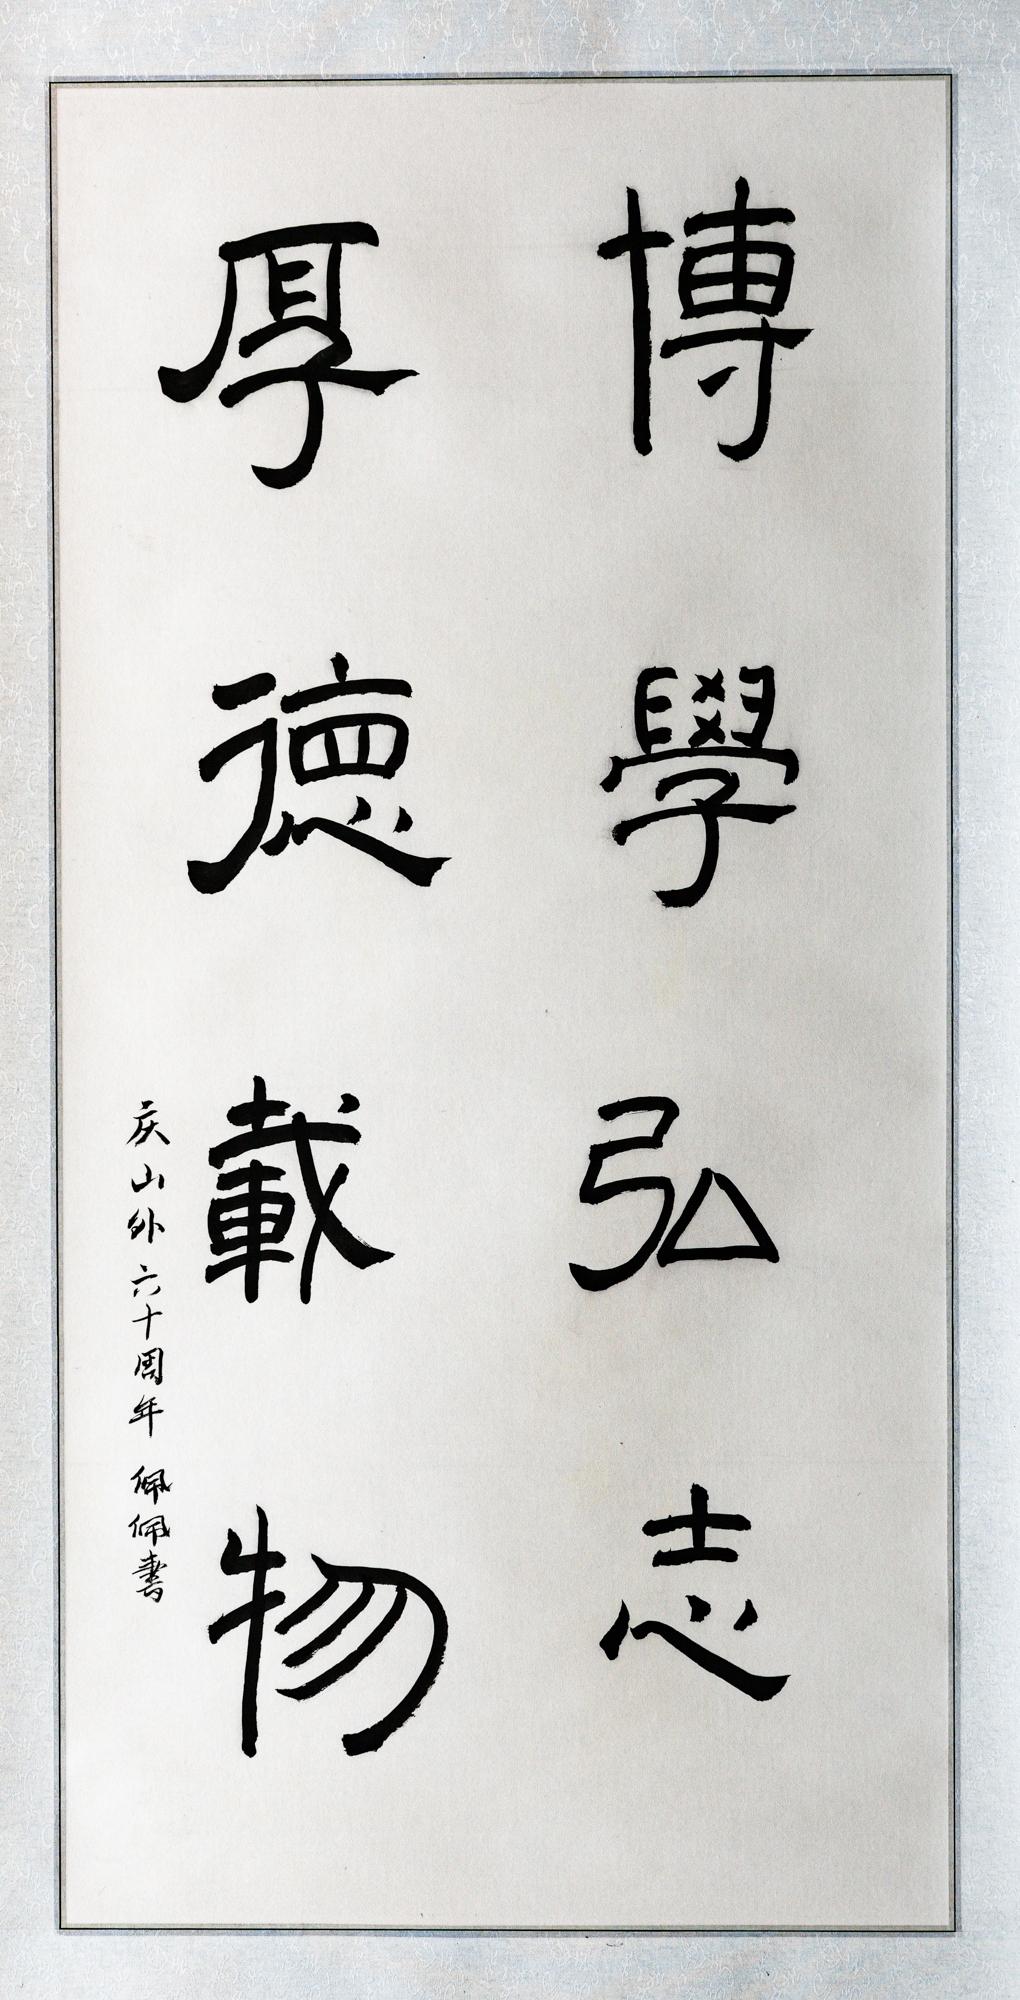 博學弘志
厚德載物
庆山外六十周年 佩佩書